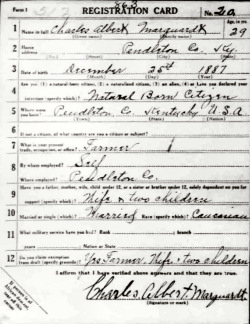 Form 1 363 REGISTRATION CARD No. 20
1 Name in full Charles Albert Marquardt Age, in yrs. 29
(Given name) (Family name)
2 Home address Pendleton Co. Ky.
(No.) (Street) (City) (State)
3 Date of birth December 25th 1887
(Month) (Day) (Year)
4 Are you (1) a natural-born citizen, (2) a naturalized citizen, (3) an alien, (4) or have you declared your intention (specify which)?
Natural Born Citizen
5 Where were you born? Pendleton Co. Kentucky U.S.A
(Town) (State) (Nation)
6 If not a citizen, of what country are you a citizen or subject?
7 What is your present trade, occupation, or office? Farmer 1
8 By whom employed? Self
Where employed? Pendleton Co.
9 Have you a father, mother, wife, child under 12, or a sister or brother under 12, solely dependent on you for support (specify which)? Wife & two children
10 Married or single (which)? Married Race (specify which)? Caucasian
11 What military service have you had? Rank ; branch
years ; Nation or State
12 Do you claim exemption from draft (specify grounds)? Yes Farmer, Wife & two children
I affirm that I have verified above answers and that they are true.
Charles Albert Marquardt
(Signature or mark)